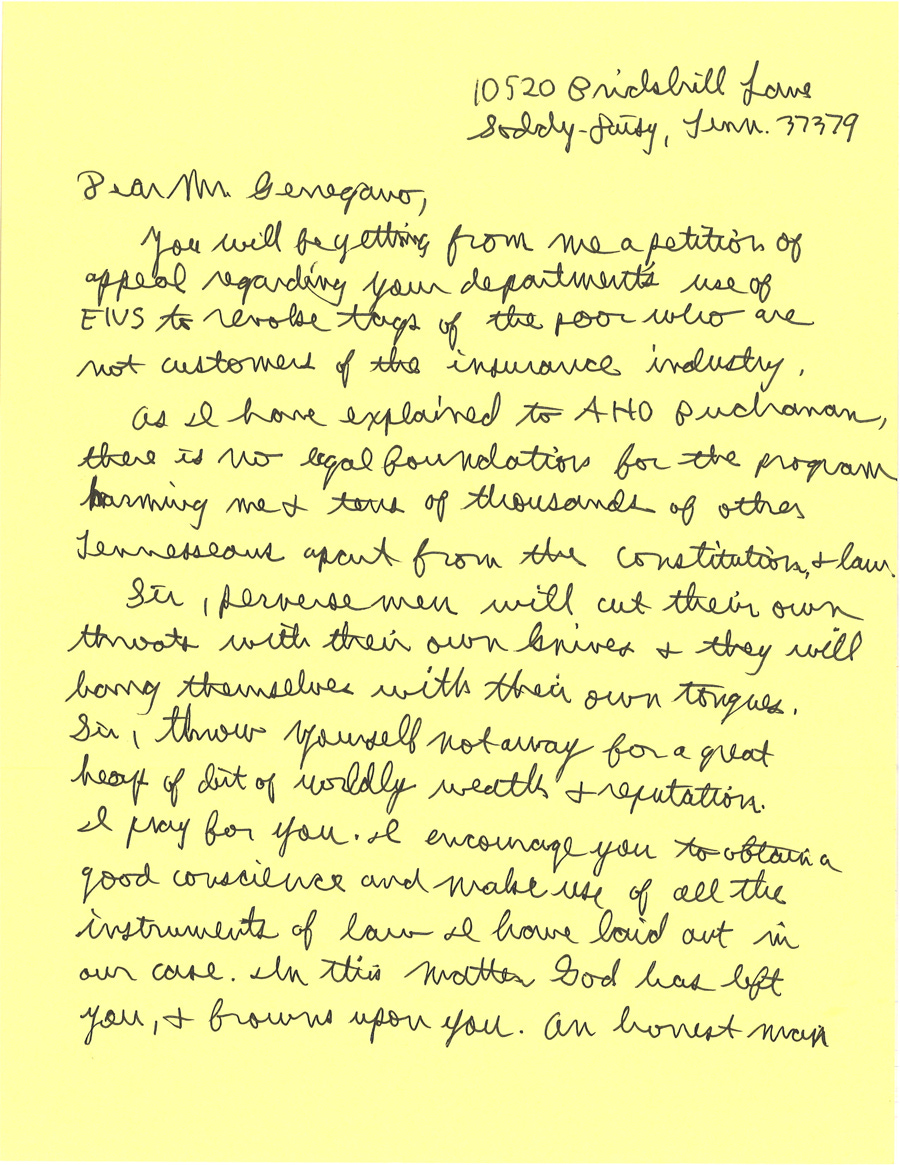 10520 Brickhill Lane
Soddy-Daisy, Tenn. 37379
Dear Mr. Gerregano,
You will be getting from me a petition of
appeal regarding your department's use of
EIVS to revoke tags of the poor who are
not customers of the insurance industry.
As I have explained to AHO Buchanan,
there is no legal foundation for the program
harming me & tens of thousands of other
Tennesseans apart from the constitution, & law.
Sir, perverse men will cut their own
throats with their own knives & they will
hang themselves with their own tongues.
Sir, throw yourself not away for a great
heap of dirt of worldly wealth & reputation.
I pray for you. I encourage you to obtain a
good conscience and make use of all the
instruments of law I have laid out in
our case. In this matter God has left
you, & frowns upon you. An honest man